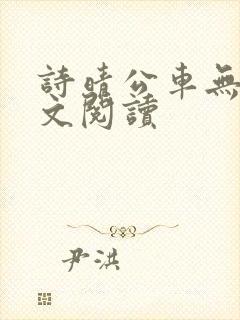 詩晴公車無
文閱讀
尹洪